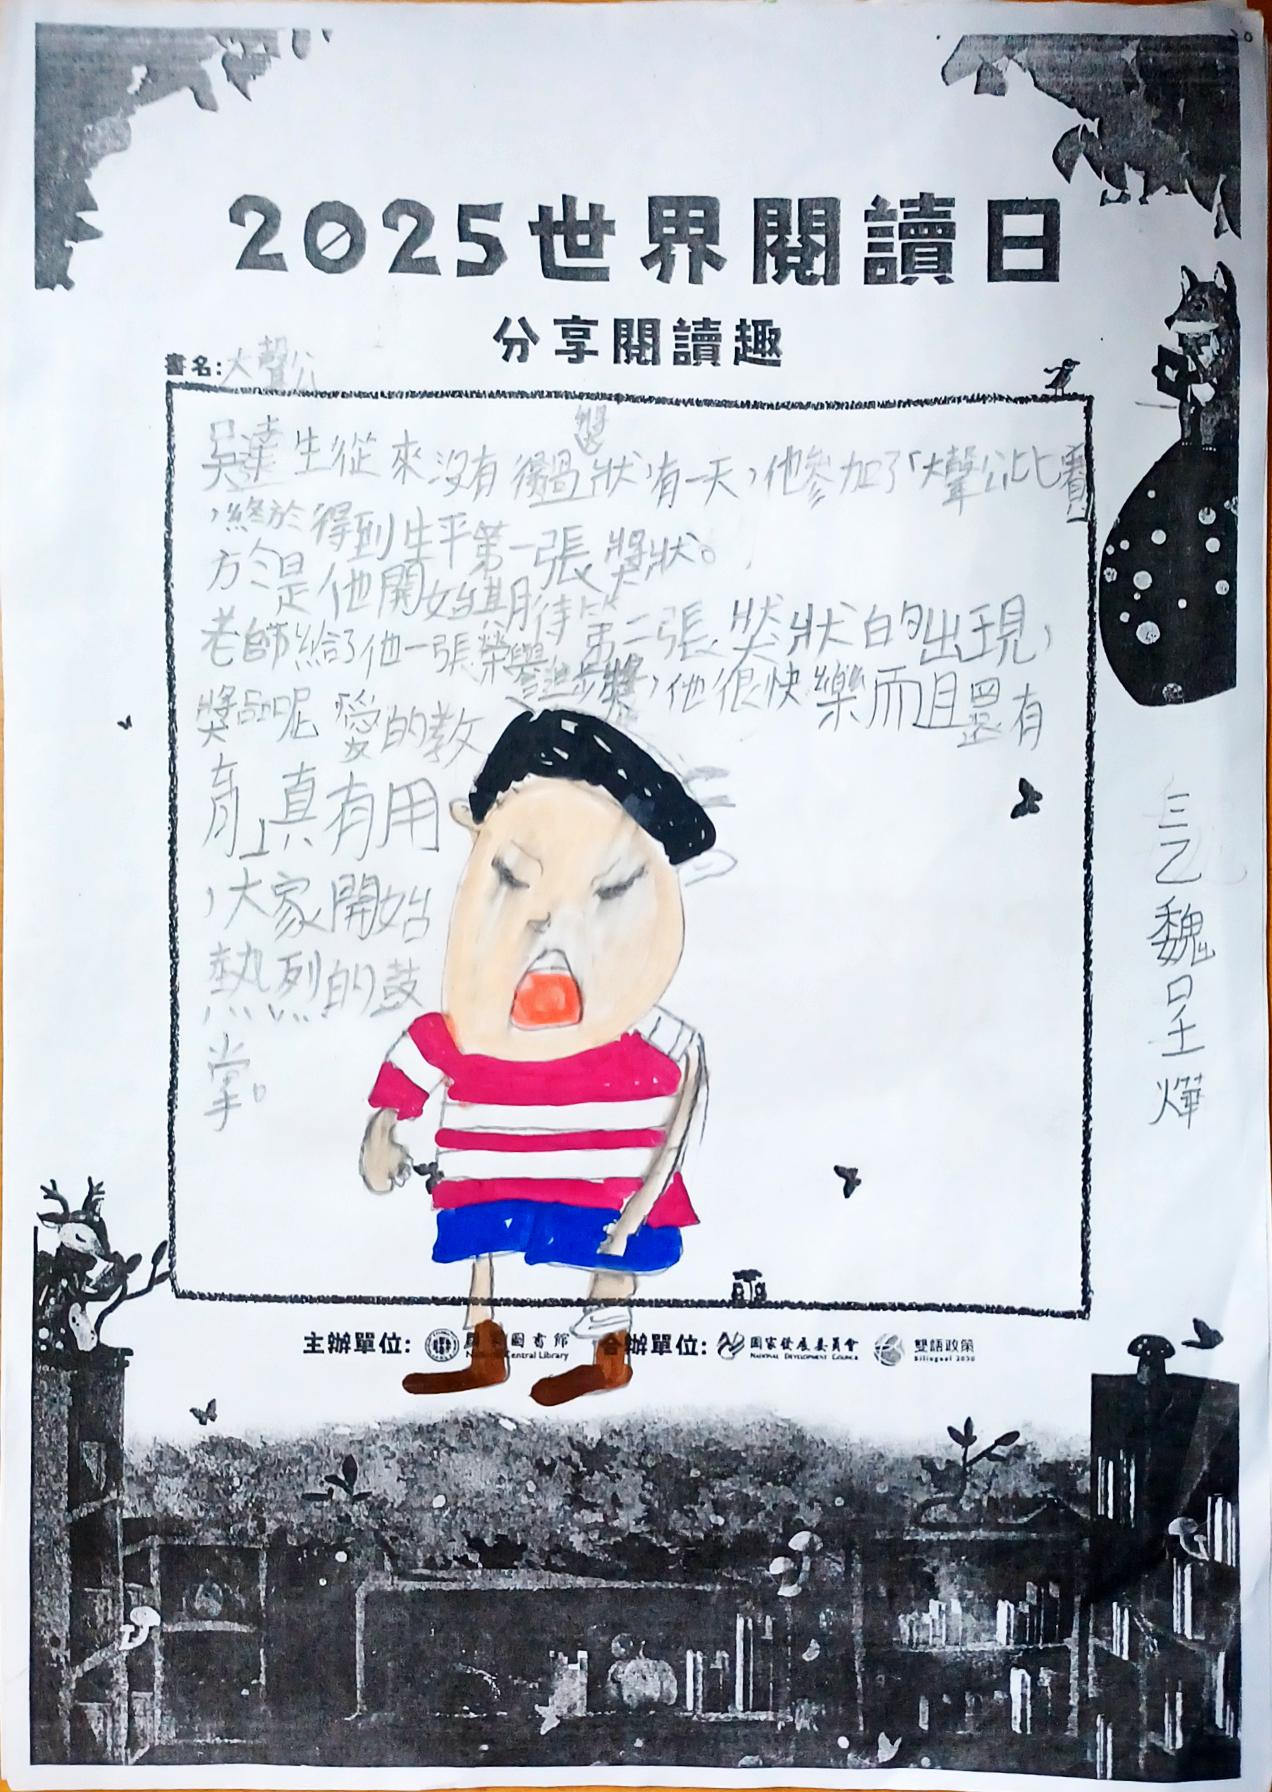 2025世界閱讀日
分享閱讀趣
書名:大聲公
吳達生從來沒有得過獎狀,有一天,他參加了「大聲公比賽
,終於得到生平第一張獎狀。
於是他開始期待第二張獎狀的出現,
老師給了他一張榮譽進步獎,他很快樂而且還有
獎品呢「愛的教
育」真有用
,大家開始
熱烈的鼓
掌。
三乙魏呈燁
主辦單位: 國家圖書館 合辦單位: 國家發展委員會 雙語政策
National Central Library NATIONAL DEVELOPMENT COUNCIL Bilingual 2030